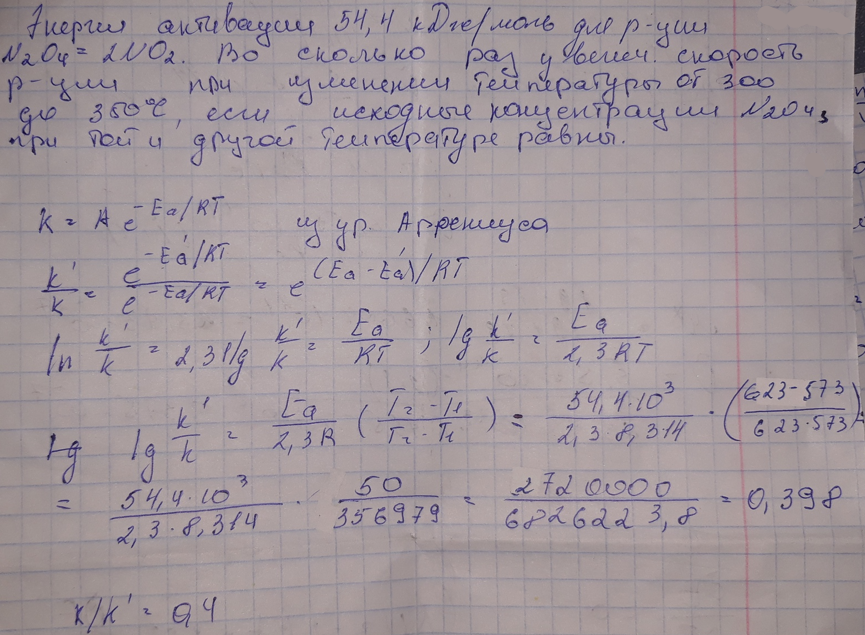 Энергия активации 54,4 кДж/моль для р-ции
N2O4 = 2NO2. Во сколько раз увелич. скорость
р-ции при изменении температуры от 300
до 350°C, если исходные концентрации N2O4
при той и другой температуре равны.
K = A e^-Ea/RT из ур. Аррениуса
k'/k = e^-Ea'/RT / e^-Ea/RT = e^(Ea-Ea')/RT
ln k'/k = 2,31lg k'/k = Ea/RT ; lg k'/k = Ea/2,3RT
lg k'/k = Ea/2,3R (T2-T1/T2-T1) = 54,4·10^3/2,3·8,314 · (623-573/623·573)
= 54,4·10^3/2,3·8,314 · 50/356979 = 2720000/6826223,8 = 0,398
K/K' = 0,4